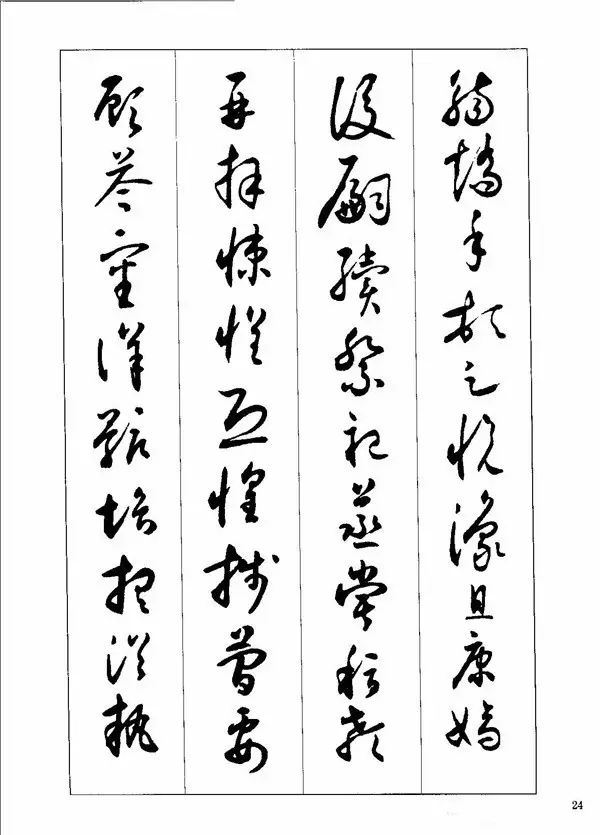 觴矯手頓足悦豫且康嫡
後嗣續祭祀蒸嘗稽顙
再拜悚懼恐惶牋簡要
顧答審詳骸垢想浴執
24